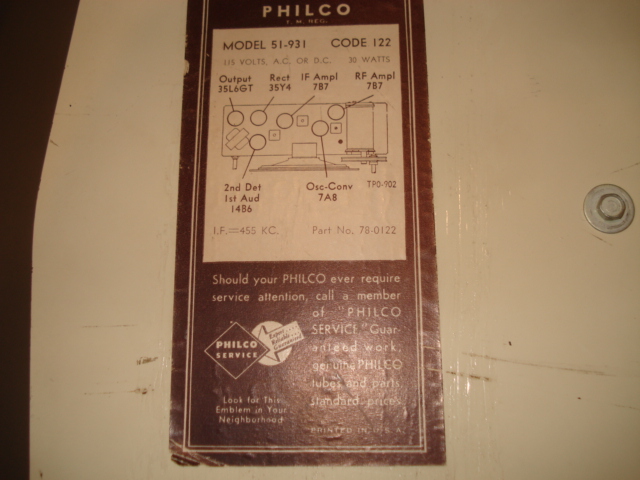 PHILCO
T. M. REG.
MODEL 51-931 CODE 122
115 VOLTS, A.C. OR D.C. 30 WATTS
Output Rect IF Ampl RF Ampl
35L6GT 35Y4 7B7 7B7
2nd Det Osc-Conv TP0-902
1st Aud 7A8
14B6
I.F.=455 KC. Part No. 78-0122
Should your PHILCO ever require
service attention, call a member
of "PHILCO
SERVICE." Guar-
anteed work,
genuine PHILCO
tubes and parts,
standard prices.
PHILCO
SERVICE
Expert
Reliable
Guaranteed
Look for This
Emblem in Your
Neighborhood
PRINTED IN U.S.A.